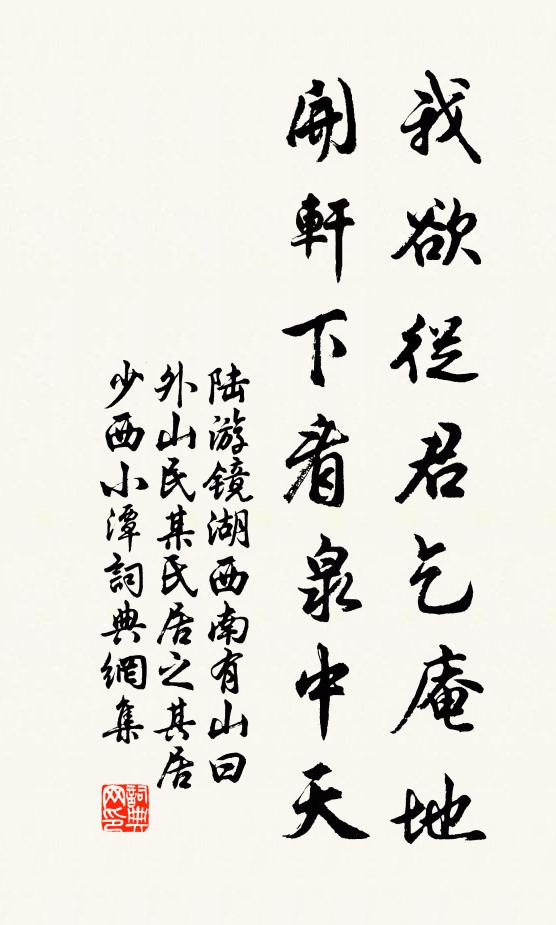 我欲從君乞庵地
開軒下看泉中天
陆游镜湖西南有山曰
外山民某氏居之其居
少西小潭詞典網集
詞典
网印